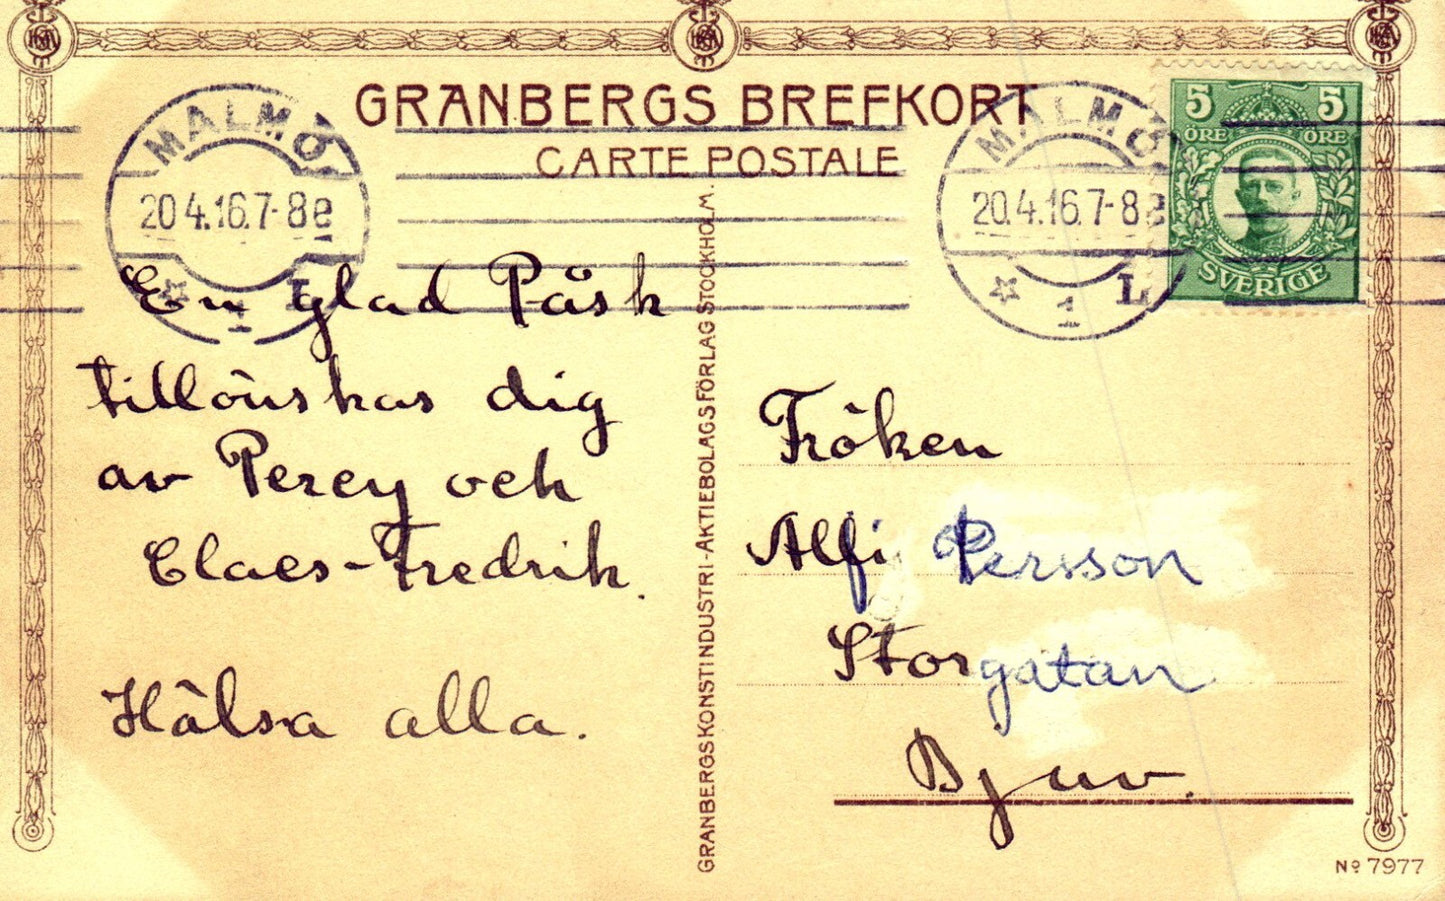 GRANBERGS BREFKORT
CARTE POSTALE
MALMÖ
20.4.16.7-8e
1 L
MALMÖ
20.4.16.7-8e
1 L
5 5
ÖRE ÖRE
SVERIGE
En glad Påsk
tillönskas dig
av Percy och
Claes-Fredrik.
Hälsa alla.
GRANBERGS KONSTINDUSTRI-AKTIEBOLAGS FÖRLAG STOCKHOLM.
Fröken
Alfi Persson
Storgatan
Bjuv.
No 7977